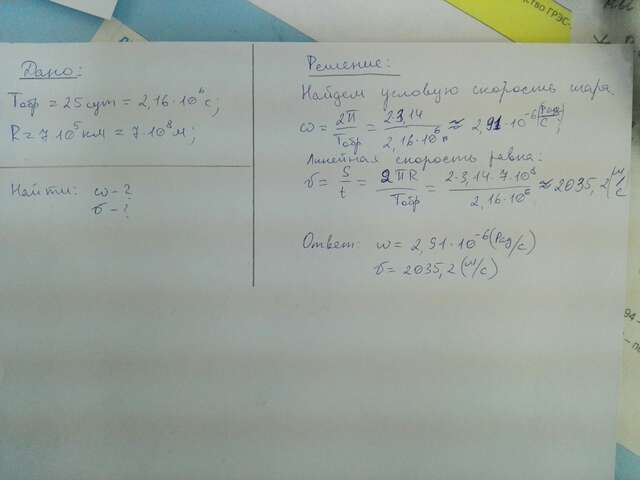 Дано:
Tобр = 25 сут = 2,16·10⁶ с;
R = 7·10⁵ км = 7·10⁸ м;
Найти: ω - ?
υ - ?
Решение:
Найдем угловую скорость шара.
ω = 2π/Tобр = 2·3,14/2,16·10⁶ ≈ 2,91·10⁻⁶ (Рад/с);
Линейная скорость равна:
υ = S/t = 2πR/Tобр = 2·3,14·7·10⁸/2,16·10⁶ ≈ 2035,2 (м/с
Ответ: ω = 2,91·10⁻⁶ (Рад/с)
υ = 2035,2 (м/с)
СТВО ГРЭС-
94 –